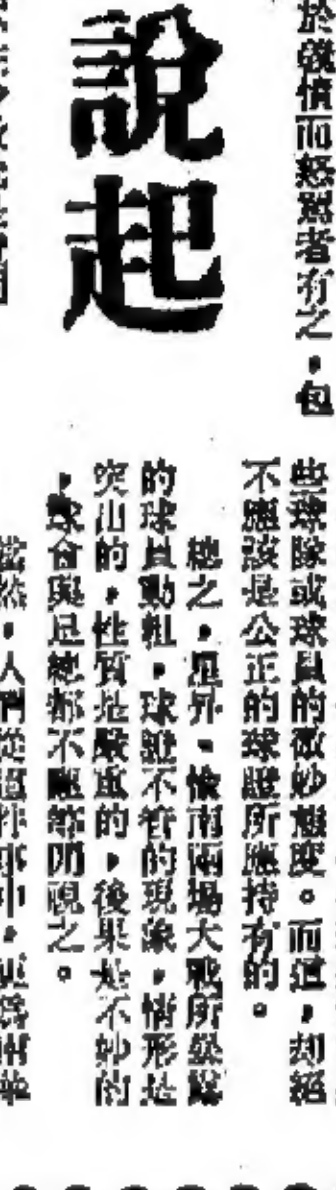 說起
於義憤而怒罵者有之,包
些球隊或球員的微妙態度。而這,却絕
不應該是公正的球證所應持有的。
總之,星昇、愉南兩場大戰所暴露
的球員動粗,球證不管的現象,情形是
突出的,性質是嚴重的,後果是不妙的
,球會與足總都不應等閒視之。
當然,人們從這件事中,更爲